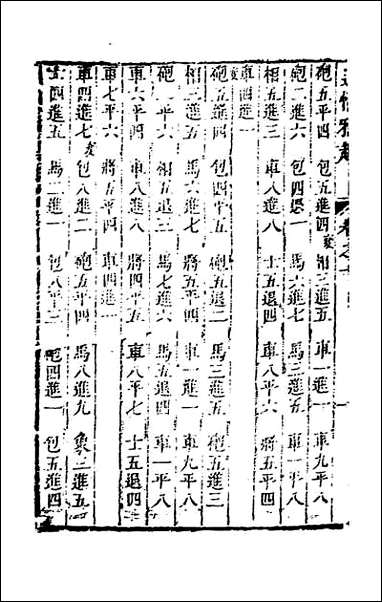 適情雅趣 卷之
砲五平四 包五進四 變 相三進五 車一進一 車九平八
砲二進六 包四退一 馬六進七 馬三進五 車一平八
相五進三 車八進八 士五退四 車八平六 將五平四
車四進一
變 包四平五 砲五退二 馬三進四 砲五進三
相三進五 馬六進七 將五平四 車一進一 車九平八
砲二進六 相五退三 馬七進六 馬五退四 車一平八
車六平四 車八進八 將四平五 車八平七 士五退四
車七平六 將五平四 車四進一
車四進七 變 包八進二 砲五平四 馬八進九 象三進五
士四進五 馬二進一 包八平三 包四進一 包五進四